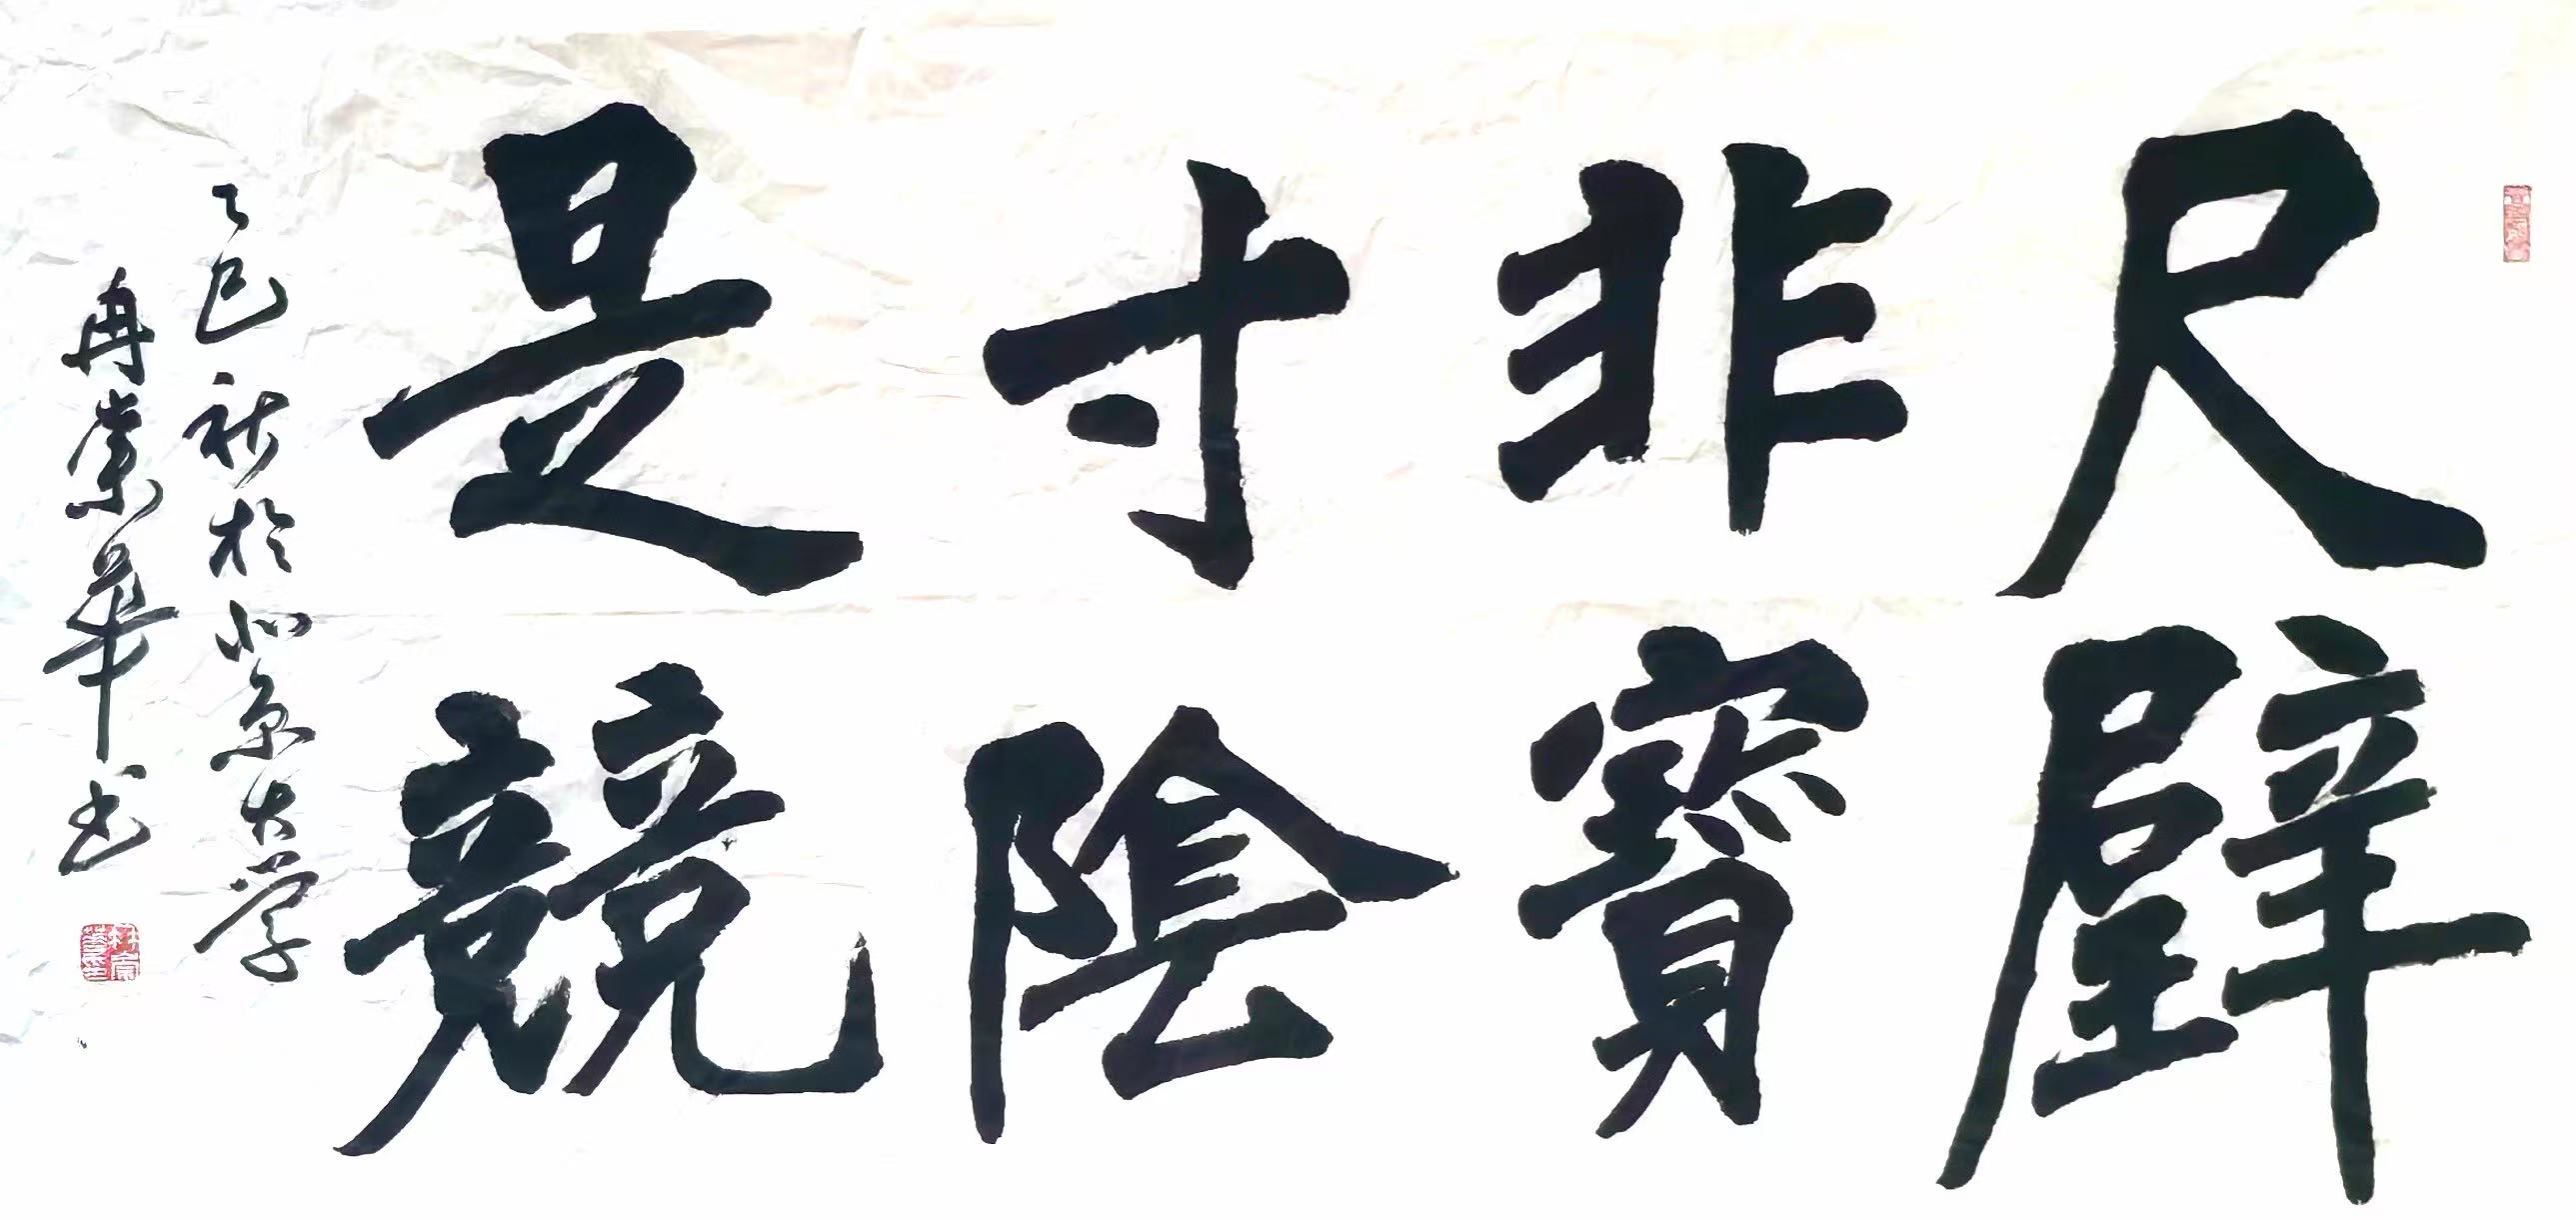 尺璧
非寶
寸陰
是競
乙巳秋於北京大学
冉崇華书